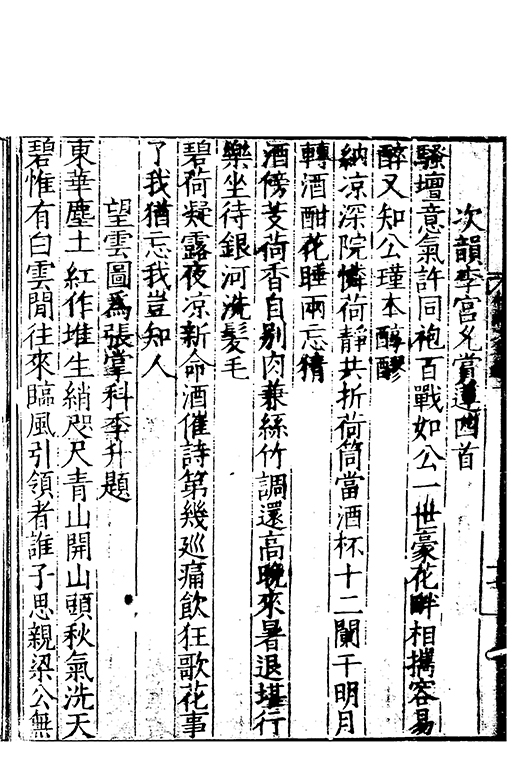 次韻李宮允賞蓮四首
騷壇意氣許同袍百戰如公一世豪花畔相攜容易
醉又知公瑾本醇醪
納凉深院憐荷靜共折荷筒當酒杯十二闌干明月
轉酒酣花睡兩忘猜
酒傍芰荷香自别肉兼絲竹調還高晚來暑退堪行
樂坐待銀河洗髮毛
碧荷凝露夜凉新命酒催詩第幾巡痛飲狂歌花事
了我猶忘我豈知人
望雲圖爲張掌科季升題
東華塵土紅作堆生綃咫尺青山開山頭秋氣洗天
碧惟有白雲閒往來臨風引領者誰子思親梁公無